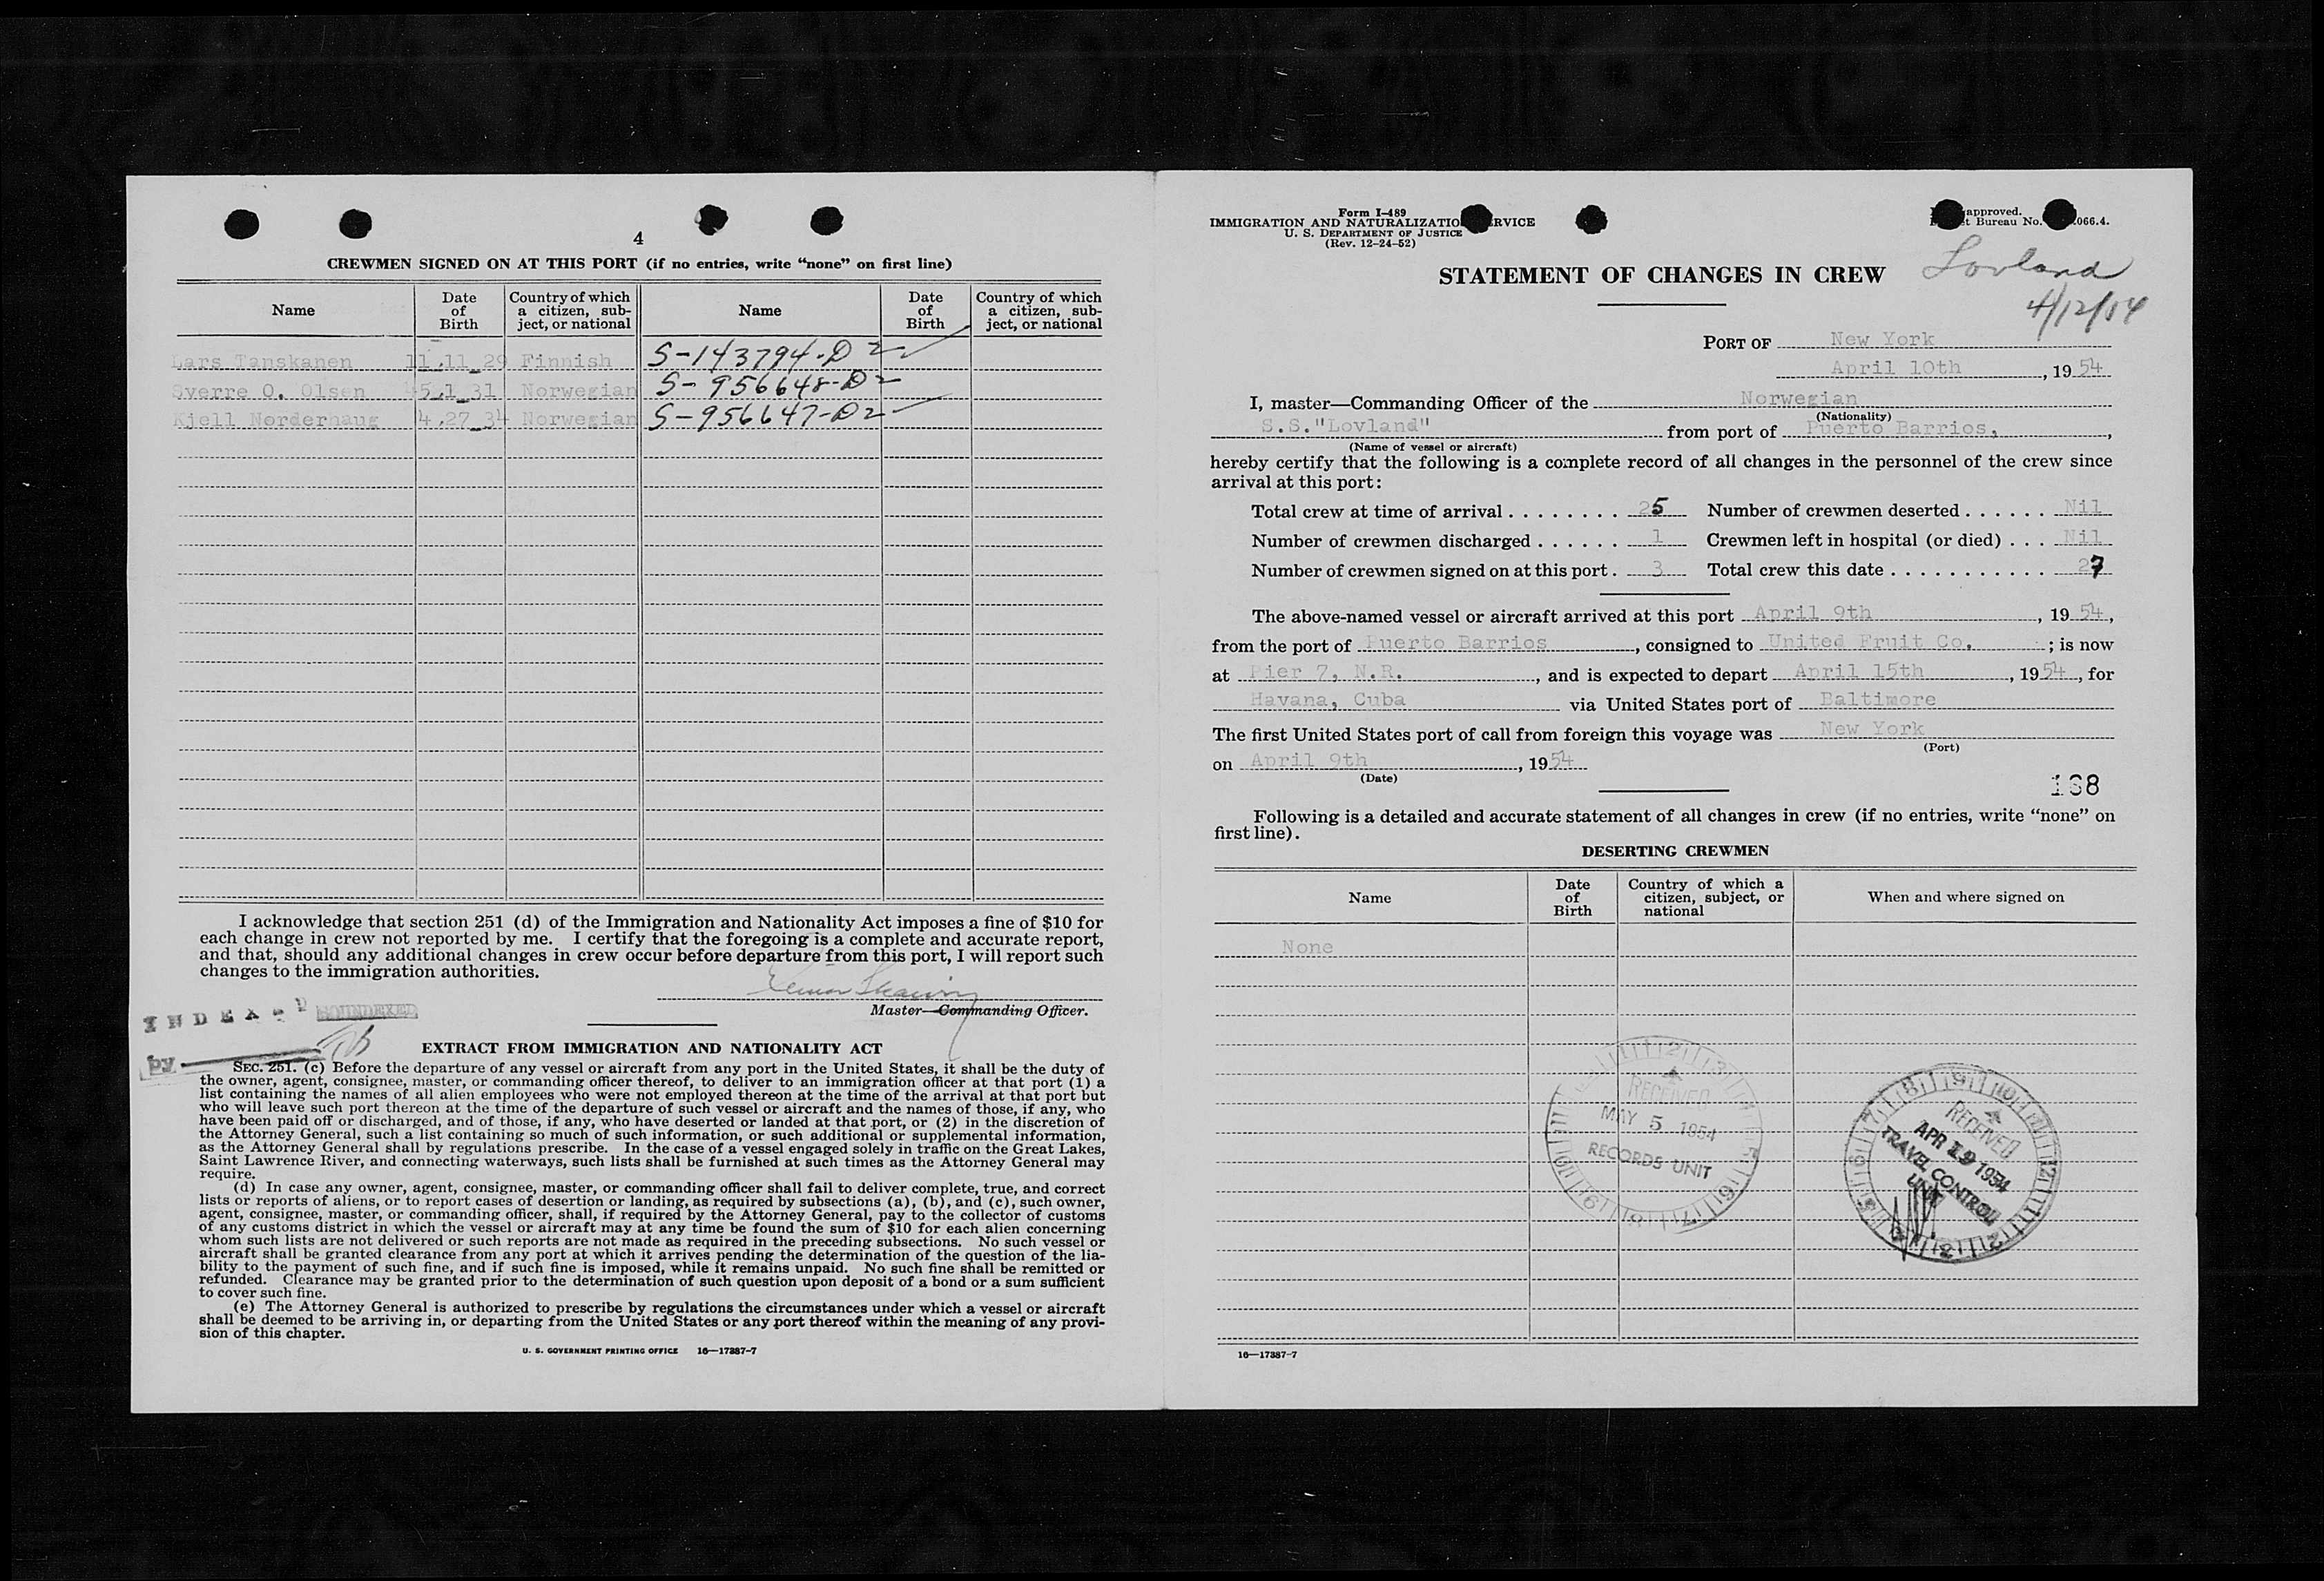 4
CREWMEN SIGNED ON AT THIS PORT (if no entries, write “none” on first line)
Name
Date of Birth
Country of which a citizen, subject, or national
Name
Date of Birth
Country of which a citizen, subject, or national
Lars Tanskanen 11.11_29 Finnish S-143794-D2
Sverre O. Olsen 5.1_31 Norwegian S-956648-D2
Kjell Norderhaug 4.27_34 Norwegian S-956647-D2
I acknowledge that section 251 (d) of the Immigration and Nationality Act imposes a fine of $10 for
each change in crew not reported by me. I certify that the foregoing is a complete and accurate report,
and that, should any additional changes in crew occur before departure from this port, I will report such
changes to the immigration authorities.
Master—Commanding Officer.
INDEXED
by
EXTRACT FROM IMMIGRATION AND NATIONALITY ACT
SEC. 251. (c) Before the departure of any vessel or aircraft from any port in the United States, it shall be the duty of
the owner, agent, consignee, master, or commanding officer thereof, to deliver to an immigration officer at that port (1) a
list containing the names of all alien employees who were not employed thereon at the time of the arrival at that port but
who will leave such port thereon at the time of the departure of such vessel or aircraft and the names of those, if any, who
have been paid off or discharged, and of those, if any, who have deserted or landed at that port, or (2) in the discretion of
the Attorney General, such a list containing so much of such information, or such additional or supplemental information,
as the Attorney General shall by regulations prescribe. In the case of a vessel engaged solely in traffic on the Great Lakes,
Saint Lawrence River, and connecting waterways, such lists shall be furnished at such times as the Attorney General may
require.
(d) In case any owner, agent, consignee, master, or commanding officer shall fail to deliver complete, true, and correct
lists or reports of aliens, or to report cases of desertion or landing, as required by subsections (a), (b), and (c), such owner,
agent, consignee, master, or commanding officer, shall, if required by the Attorney General, pay to the collector of customs
of any customs district in which the vessel or aircraft may at any time be found the sum of $10 for each alien concerning
whom such lists are not delivered or such reports are not made as required in the preceding subsections. No such vessel or
aircraft shall be granted clearance from any port at which it arrives pending the determination of the question of the lia-
bility to the payment of such fine, and if such fine is imposed, while it remains unpaid. No such fine shall be remitted or
refunded. Clearance may be granted prior to the determination of such question upon deposit of a bond or a sum sufficient
to cover such fine.
(e) The Attorney General is authorized to prescribe by regulations the circumstances under which a vessel or aircraft
shall be deemed to be arriving in, or departing from the United States or any port thereof within the meaning of any provi-
sion of this chapter.
U. S. GOVERNMENT PRINTING OFFICE 16—17387-7
Form I-489
IMMIGRATION AND NATURALIZATIO RVICE
U. S. DEPARTMENT OF JUSTICE
(Rev. 12-24-52)
approved.
t Bureau No. 066.4.
Lovland
4/12/54
STATEMENT OF CHANGES IN CREW
PORT OF New York
April 10th, 1954
I, master—Commanding Officer of the Norwegian
(Nationality)
S.S."Lovland" from port of Puerto Barrios,,
(Name of vessel or aircraft)
hereby certify that the following is a complete record of all changes in the personnel of the crew since
arrival at this port:
Total crew at time of arrival . . . . . . . . 25 Number of crewmen deserted . . . . . . Nil
Number of crewmen discharged . . . . . . 1 Crewmen left in hospital (or died) . . . Nil
Number of crewmen signed on at this port . 3 Total crew this date . . . . . . . . . . . . 27
The above-named vessel or aircraft arrived at this port April 9th, 1954,
from the port of Puerto Barrios, consigned to United Fruit Co. ; is now
at Pier 7, N.R., and is expected to depart April 15th, 1954, for
Havana, Cuba via United States port of Baltimore
The first United States port of call from foreign this voyage was New York
(Port)
on April 9th, 1954
(Date)
168
Following is a detailed and accurate statement of all changes in crew (if no entries, write “none” on
first line).
DESERTING CREWMEN
Name
Date of Birth
Country of which a citizen, subject, or national
When and where signed on
None
RECEIVED
MAY 5 1954
RECORDS UNIT
RECEIVED
APR 19 1954
TRAVEL CONTROL
UNIT
16—17387-7